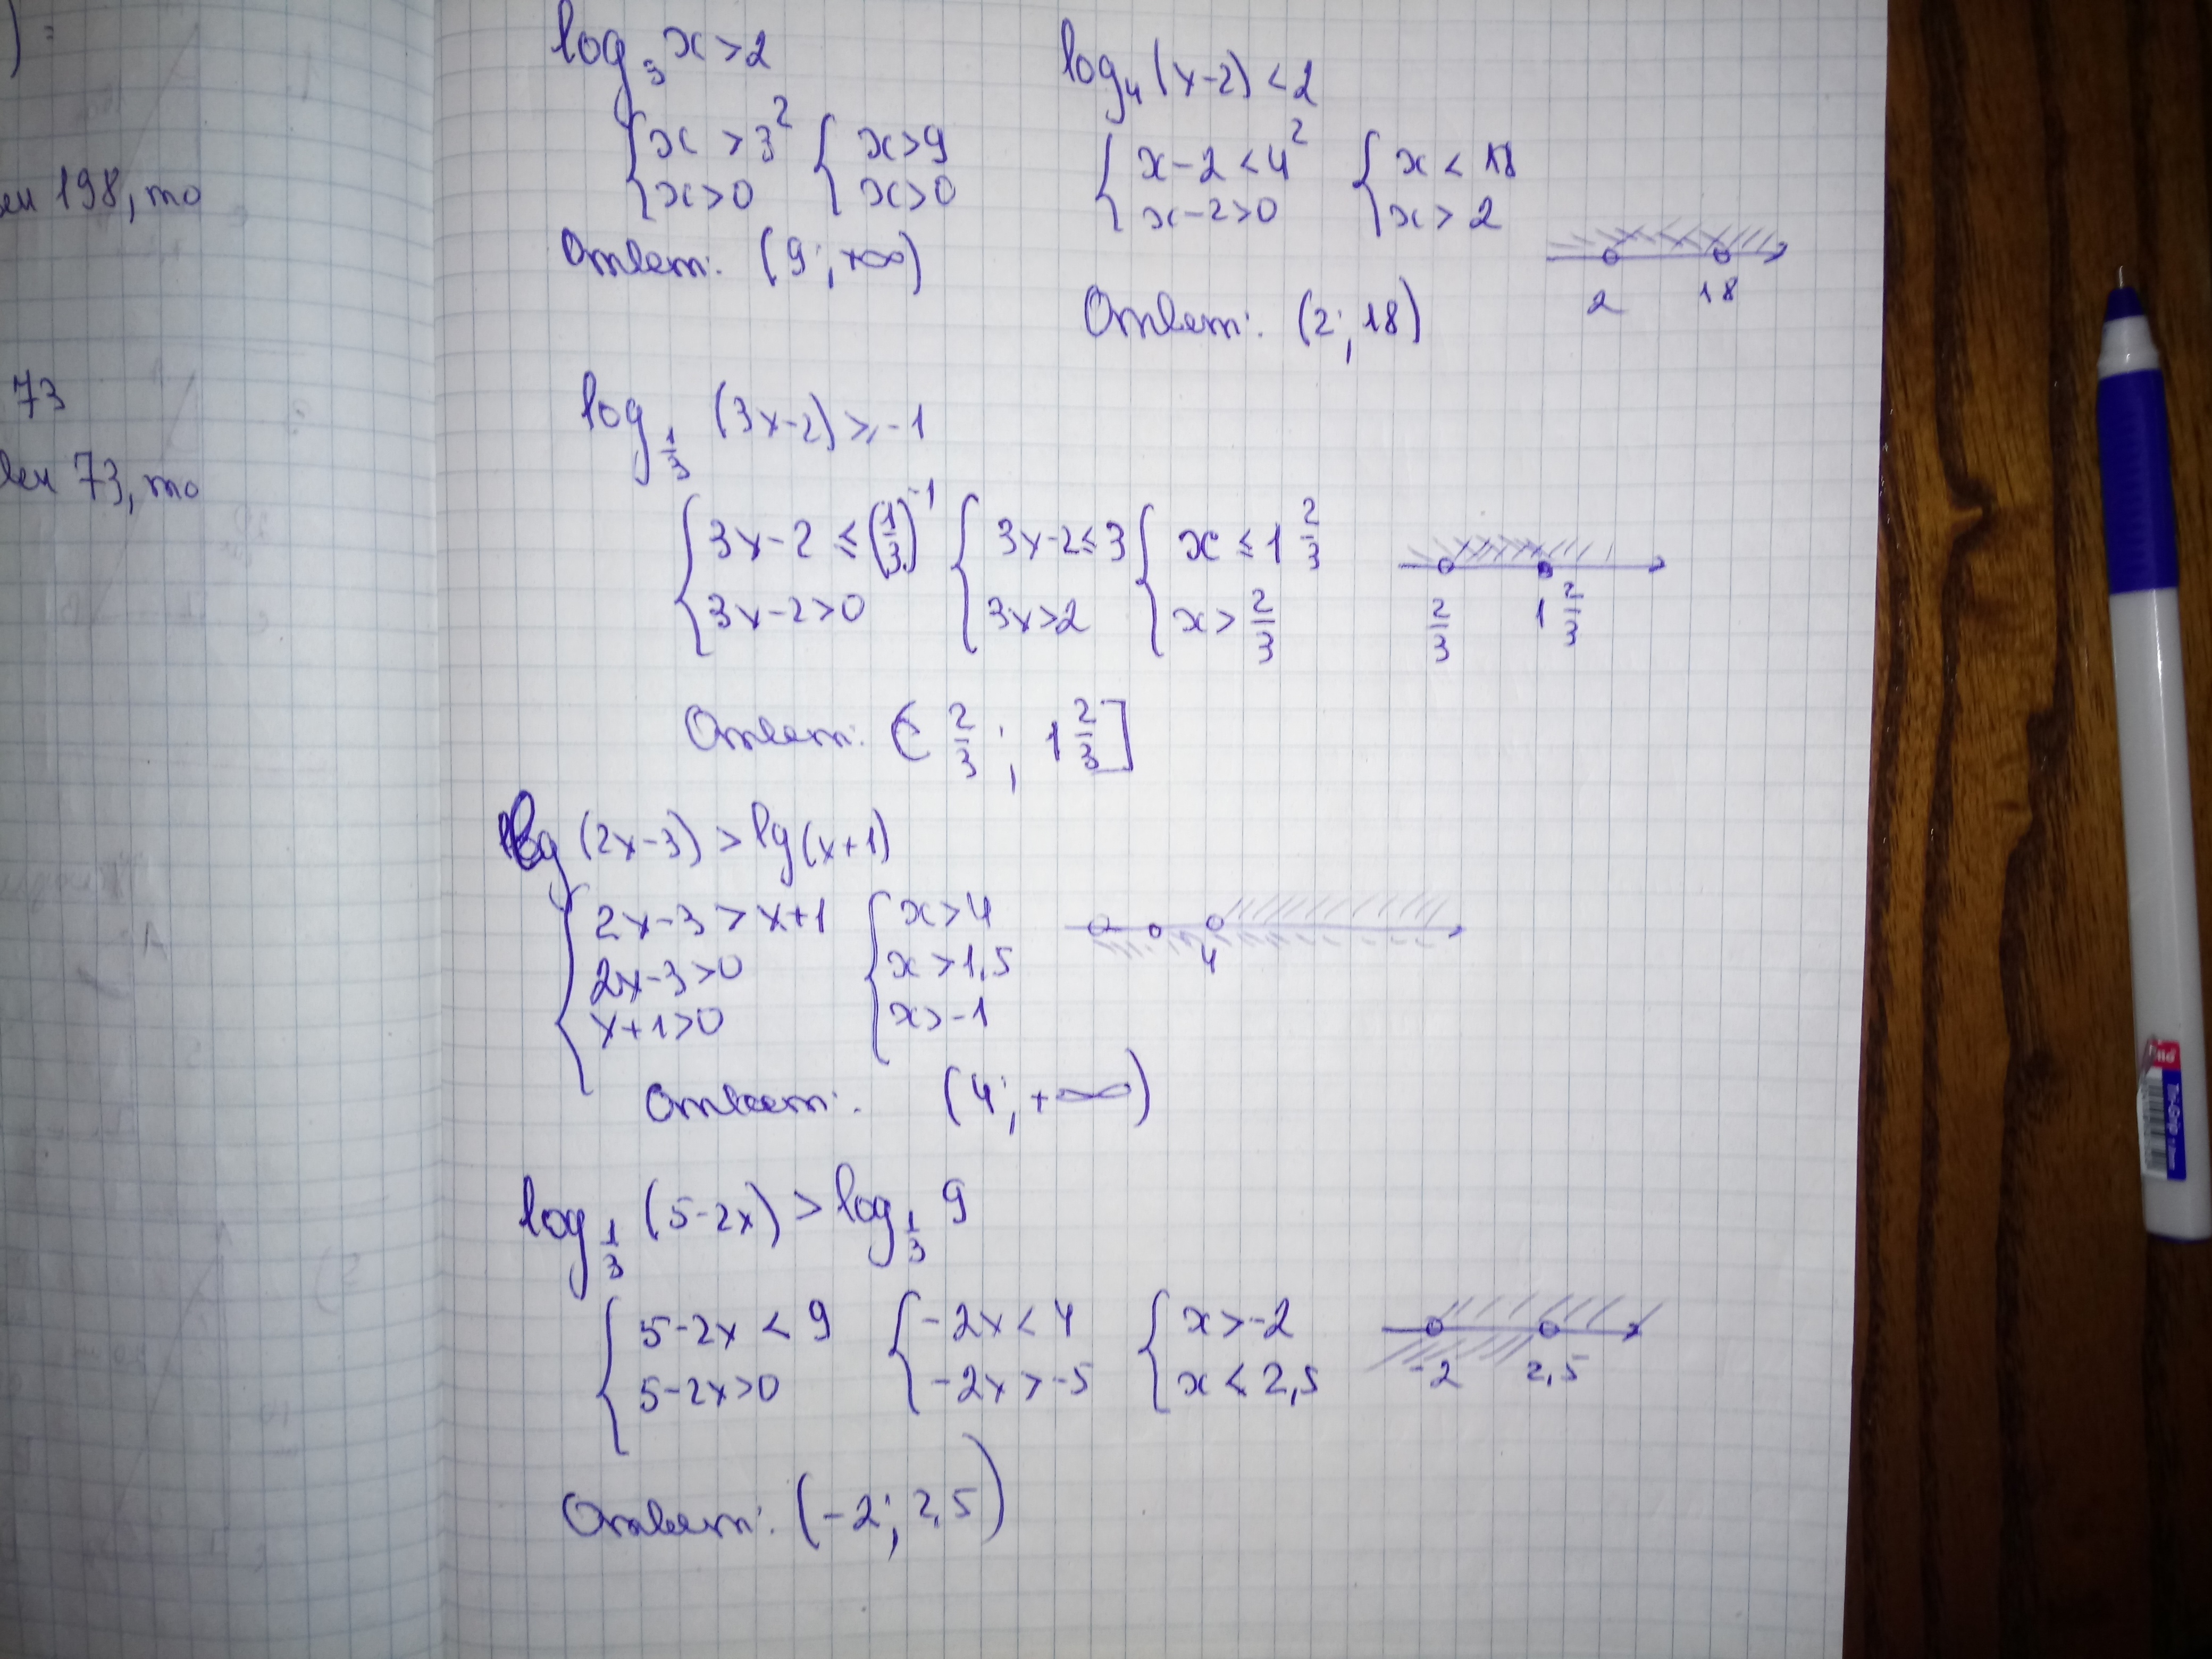 ) =
лен 198, то
73
лен 73, то
log₃ x > 2
{ x > 3² { x > 9
{ x > 0 { x > 0
Ответ: (9; +∞)
log₄ (x-2) < 2
{ x - 2 < 4² { x < 18
{ x - 2 > 0 { x > 2
2 18
Ответ: (2; 18)
log 1/3 (3x-2) ≥ -1
{ 3x - 2 ≤ (1/3)⁻¹ { 3x-2 ≤ 3 { x ≤ 1 2/3
{ 3x - 2 > 0 { 3x > 2 { x > 2/3
2/3 1 2/3
Ответ: ( 2/3 ; 1 2/3 ]
lg (2x-3) > lg (x+1)
{ 2x-3 > x+1 { x > 4
{ 2x-3 > 0 { x > 1,5
{ x+1 > 0 { x > -1
4
Ответ: (4; +∞)
log 1/3 (5-2x) > log 1/3 9
{ 5-2x < 9 { -2x < 4 { x > -2
{ 5-2x > 0 { -2x > -5 { x < 2,5
-2 2,5
Ответ: (-2; 2,5)